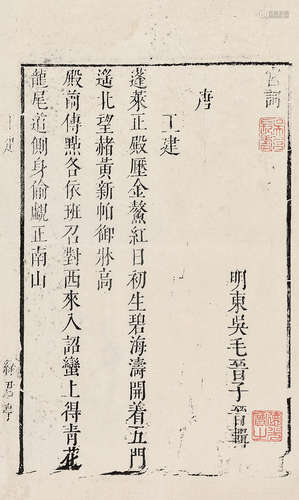 宮詞
明東吳毛晉子晉輯
唐
王建
蓬萊正殿壓金鰲紅日初生碧海濤開着五門
遙北望赭黃新帕御牀高
殿前傳點各依班召對西來入詔蠻上得青花
龍尾道側身偷覷正南山